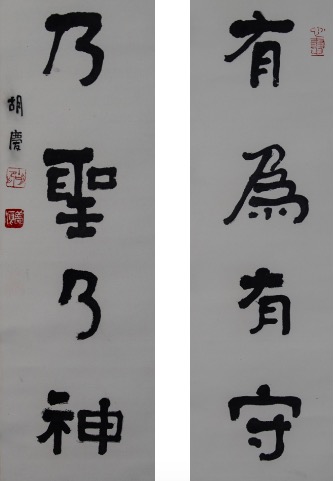 有為有守
乃聖乃神
胡慶